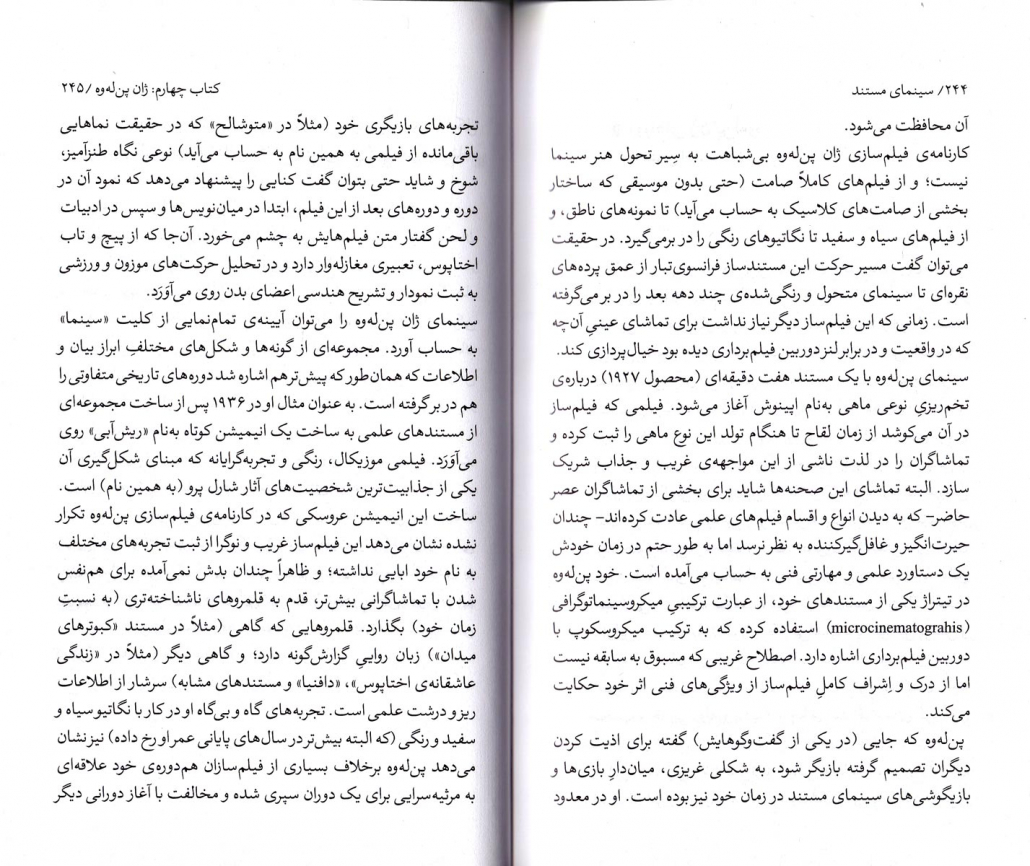 ۲۴۴/ سینمای مستند
آن محافظت می‌شود.
کارنامه‌ی فیلم‌سازی ژان پن‌له‌وه بی‌شباهت به سِیر تحول هنر سینما
نیست؛ و از فیلم‌های کاملاً صامت (حتی بدون موسیقی که ساختار
بخشی از صامت‌های کلاسیک به حساب می‌آید) تا نمونه‌های ناطق، و
از فیلم‌های سیاه و سفید تا نگاتیوهای رنگی را در برمی‌گیرد. در حقیقت
می‌توان گفت مسیر حرکت این مستندساز فرانسوی‌تبار از عمق پرده‌های
نقره‌ای تا سینمای متحول و رنگی‌شده‌ی چند دهه بعد را در بر می‌گرفته
است. زمانی که این فیلم‌ساز دیگر نیاز نداشت برای تماشای عینیِ آن‌چه
که در واقعیت و در برابر لنز دوربین فیلم‌برداری دیده بود خیال‌پردازی کند.
سینمای پن‌له‌وه با یک مستند هفت دقیقه‌ای (محصول ۱۹۲۷) درباره‌ی
تخم‌ریزیِ نوعی ماهی به‌نام اپینوش آغاز می‌شود. فیلمی که فیلم‌ساز
در آن می‌کوشد از زمان لقاح تا هنگام تولد این نوع ماهی را ثبت کرده و
تماشاگران را در لذت ناشی از این مواجهه‌ی غریب و جذاب شریک
سازد. البته تماشای این صحنه‌ها شاید برای بخشی از تماشاگران عصر
حاضر- که به دیدن انواع و اقسام فیلم‌های علمی عادت کرده‌اند- چندان
حیرت‌انگیز و غافل‌گیرکننده به نظر نرسد اما به طور حتم در زمان خودش
یک دستاورد علمی و مهارتی فنی به حساب می‌آمده است. خود پن‌له‌وه
در تیتراژ یکی از مستندهای خود، از عبارت ترکیبیِ میکروسینماتوگرافی
(microcinematograhis) استفاده کرده که به ترکیب میکروسکوپ با
دوربین فیلم‌برداری اشاره دارد. اصطلاح غریبی که مسبوق به سابقه نیست
اما از درک و اِشراف کاملِ فیلم‌ساز از ویژگی‌های فنی اثر خود حکایت
می‌کند.
پن‌له‌وه که جایی (در یکی از گفت‌وگوهایش) گفته برای اذیت کردن
دیگران تصمیم گرفته بازیگر شود، به شکلی غریزی، میان‌دارِ بازی‌ها و
بازیگوشی‌های سینمای مستند در زمان خود نیز بوده است. او در معدود
کتاب چهارم: ژان پن‌له‌وه /۲۴۵
تجربه‌های بازیگری خود (مثلاً در «متوشالح» که در حقیقت نماهایی
باقی‌مانده از فیلمی به همین نام به حساب می‌آید) نوعی نگاه طنزآمیز،
شوخ و شاید حتی بتوان گفت کنایی را پیشنهاد می‌دهد که نمود آن در
دوره و دوره‌های بعد از این فیلم، ابتدا در میان‌نویس‌ها و سپس در ادبیات
و لحن گفتار متن فیلم‌هایش به چشم می‌خورد. آن‌جا که از پیچ و تاب
اختاپوس، تعبیری مغازله‌وار دارد و در تحلیل حرکت‌های موزون و ورزشی
به ثبت نمودار و تشریح هندسی اعضای بدن روی می‌آوَرَد.
سینمای ژان پن‌له‌وه را می‌توان آیینه‌ی تمام‌نمایی از کلیت «سینما»
به حساب آورد. مجموعه‌ای از گونه‌ها و شکل‌های مختلفِ ابراز بیان و
اطلاعات که همان‌طور که پیش‌تر هم اشاره شد دوره‌های تاریخی متفاوتی را
هم در بر گرفته است. به عنوان مثال او در ۱۹۳۶ پس از ساخت مجموعه‌ای
از مستندهای علمی به ساخت یک انیمیشن کوتاه به‌نام «ریش‌آبی» روی
می‌آوَرَد. فیلمی موزیکال، رنگی و تجربه‌گرایانه که مبنای شکل‌گیری آن
یکی از جذابیت‌ترین شخصیت‌های آثار شارل پرو (به همین نام) است.
ساخت این انیمیشن عروسکی که در کارنامه‌ی فیلم‌سازی پن‌له‌وه تکرار
نشده نشان می‌دهد این فیلم‌ساز غریب و نوگرا از ثبت تجربه‌های مختلف
به نام خود ابایی نداشته؛ و ظاهراً چندان بدش نمی‌آمده برای هم‌نفس
شدن با تماشاگرانی بیش‌تر، قدم به قلمروهای ناشناخته‌تری (به نسبتِ
زمان خود) بگذارد. قلمروهایی که گاهی (مثلاً در مستند «کبوترهای
میدان») زبان رواییِ گزارش‌گونه دارد؛ و گاهی دیگر (مثلاً در «زندگی
عاشقانه‌ی اختاپوس»، «دافنیا» و مستندهای مشابه) سرشار از اطلاعات
ریز و درشت علمی است. تجربه‌های گاه و بی‌گاه او در کار با نگاتیو سیاه و
سفید و رنگی (که البته بیش‌تر در سال‌های پایانی عمر او رخ داده) نیز نشان
می‌دهد پن‌له‌وه برخلاف بسیاری از فیلم‌سازان هم‌دوره‌ی خود علاقه‌ای
به مرثیه‌سرایی برای یک دوران سپری شده و مخالفت با آغاز دورانی دیگر